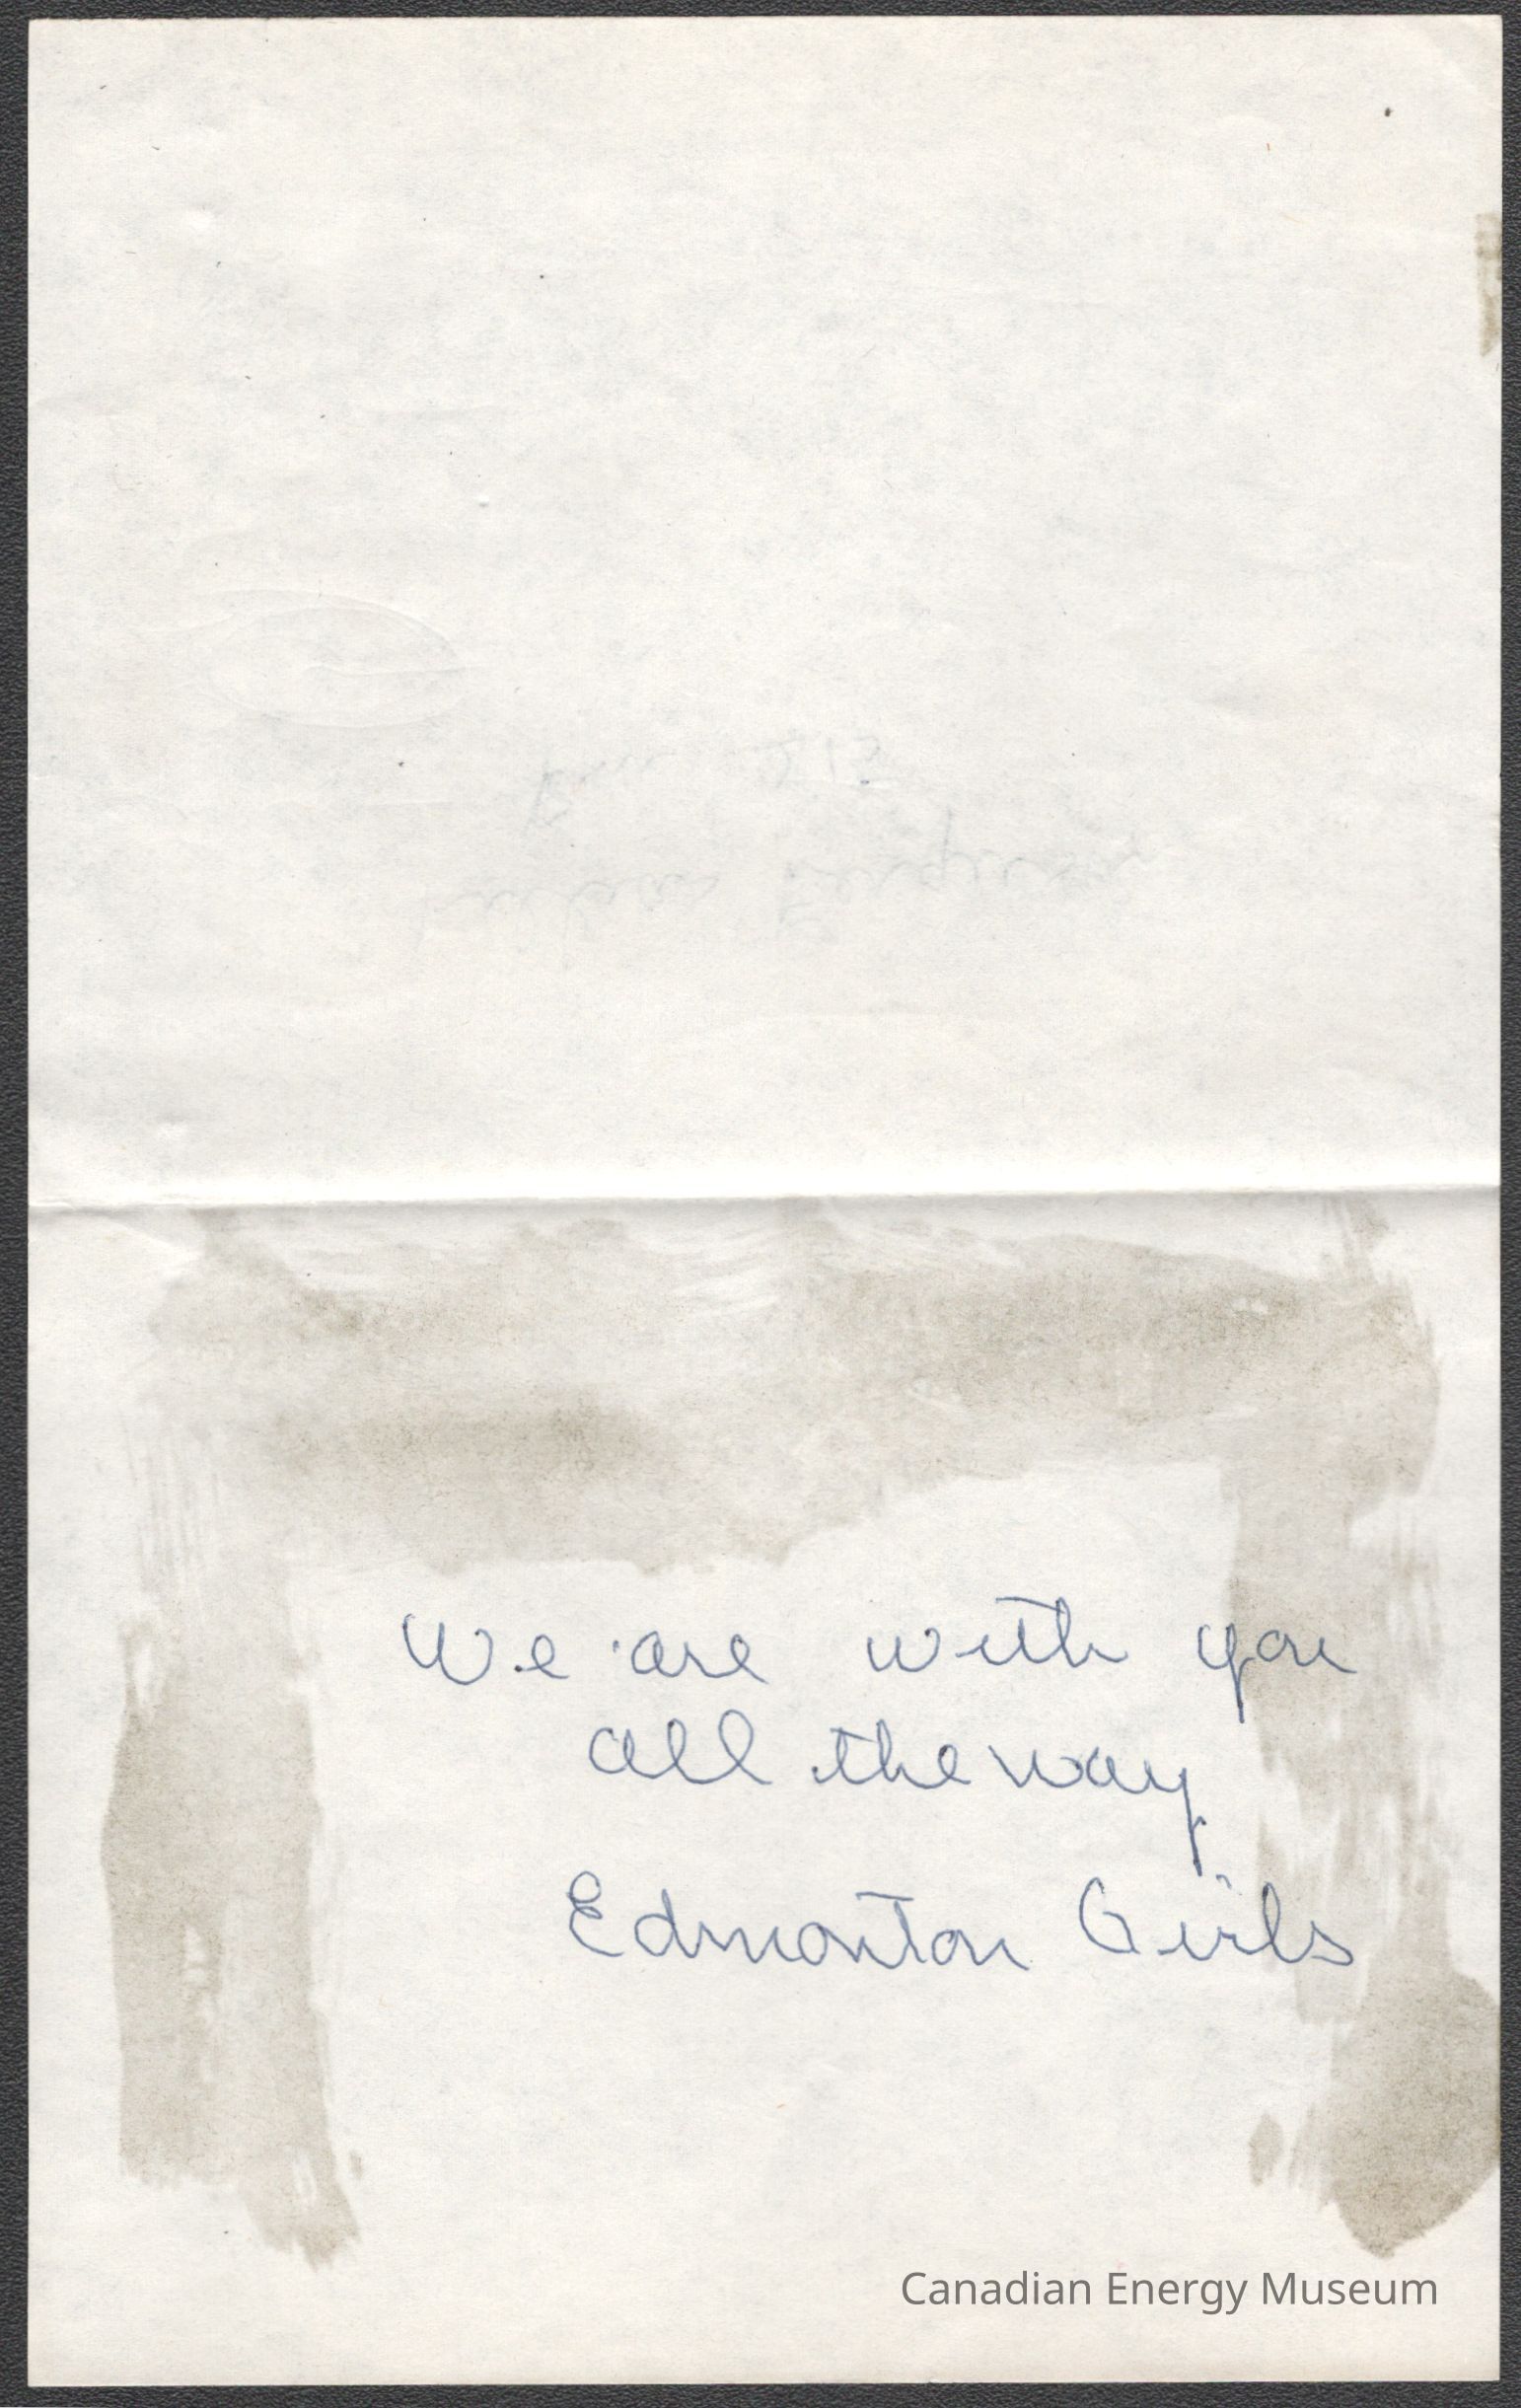 We are with you
all the way
Edmonton Girls
Canadian Energy Museum